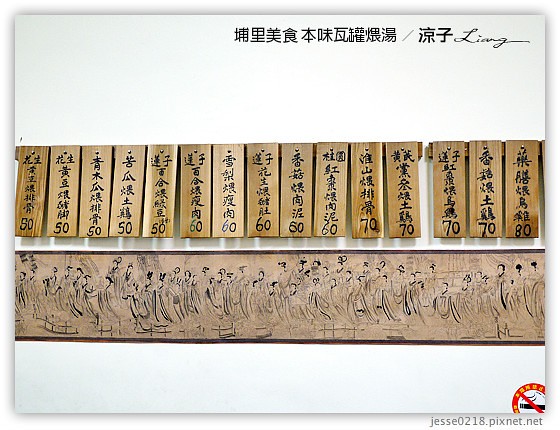 埔里美食 本味瓦罐煨湯 / 涼子 Liang
花生黃豆煨排骨 50
花生黃豆煨豬腳 50
青木瓜煨排骨 50
苦瓜煨土雞 50
蓮子百合煨綠豆 50
蓮子百合煨瘦肉 60
雪梨煨瘦肉 60
蓮子花生煨豬肚 60
番菇煨肉泥 60
桂圓紅棗煨肉泥 60
淮山煨排骨 70
黃芪黨參煨土雞 70
蓮子紅棗煨烏雞 70
番菇煨土雞 70
藥膳煨烏雞 80
jesse0218.pixnet.net